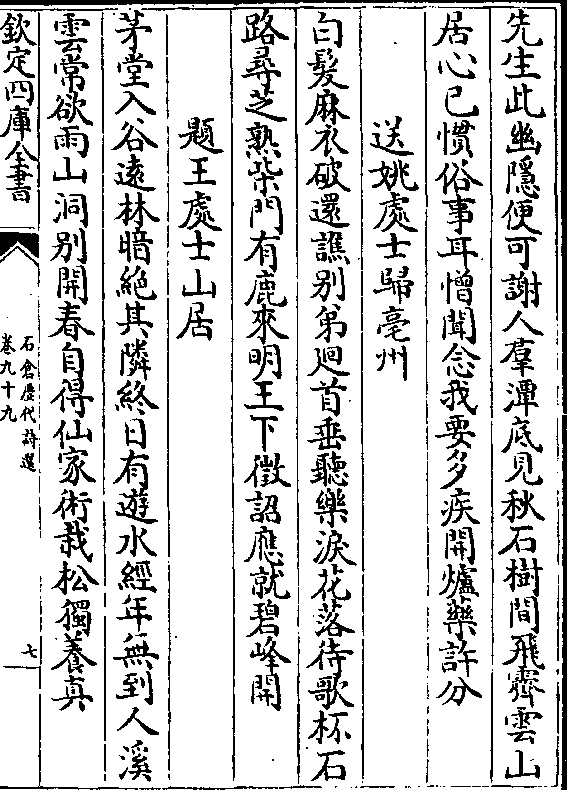 先生此幽隱便可謝人羣潭底見秋石樹間飛霽雲山
居心已慣俗事耳憎聞念我要多疾開爐藥許分
送姚處士歸亳州
白髮麻衣破還譙別弟迴首垂聽樂淚花落待歌杯石
路尋芝熟柴門有鹿來明王下徵詔應就碧峰開
題王處士山居
茅堂入谷遠林暗絕其隣終日有遊水經年無到人溪
雲常欲雨山洞別開春自得仙家術栽松獨養真
欽定四庫全書
石倉歷代詩選
卷九十九
七